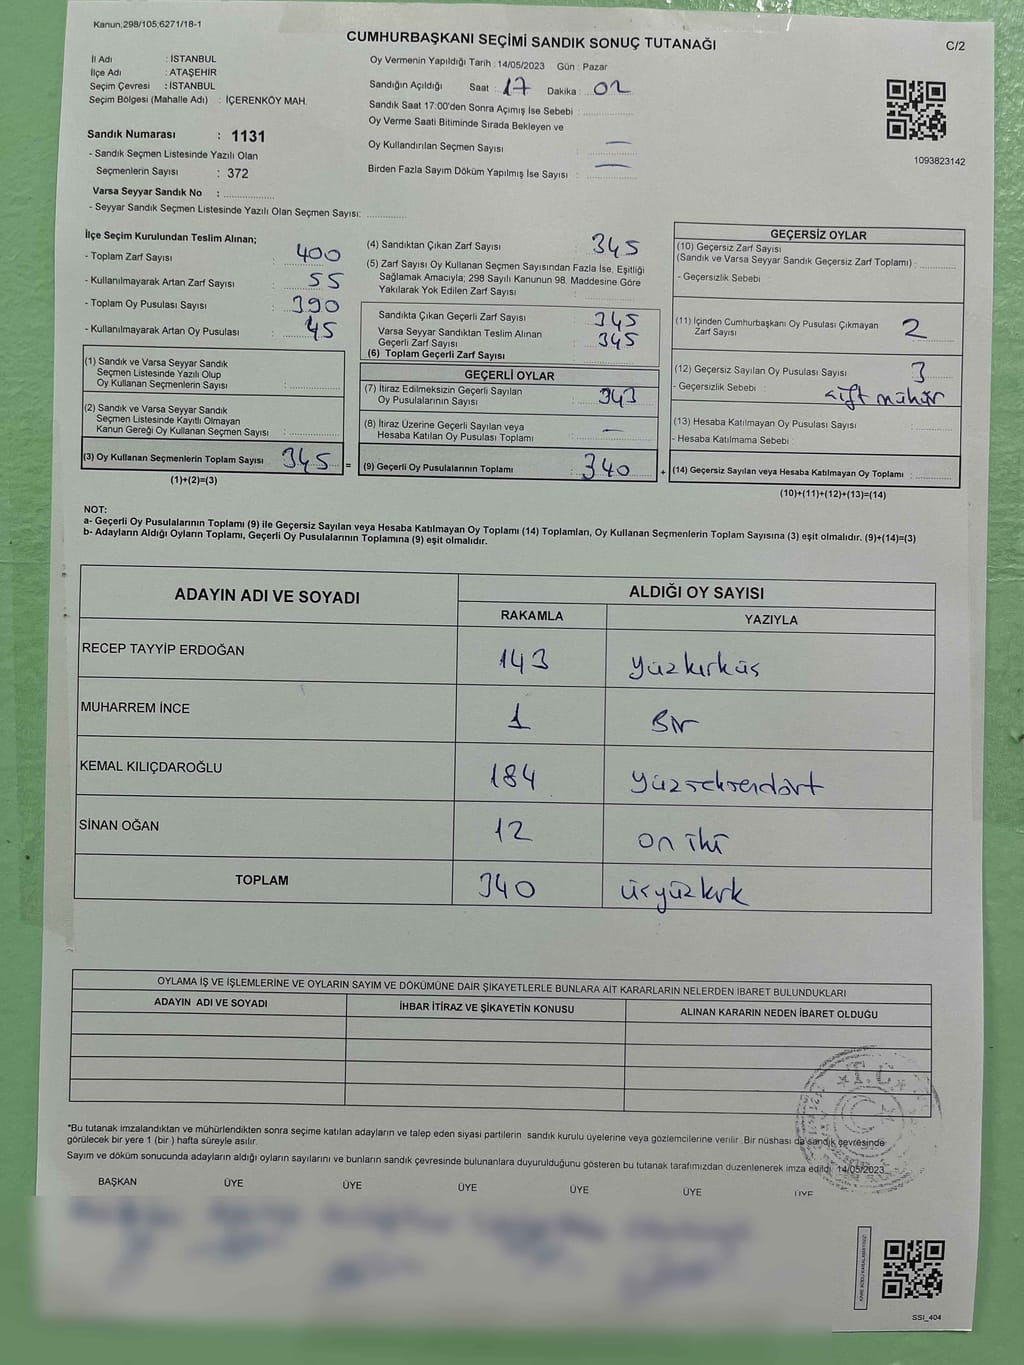 Kanun,298/105,6271/18-1
CUMHURBAŞKANI SEÇİMİ SANDIK SONUÇ TUTANAĞI
C/2
İl Adı : İSTANBUL
İlçe Adı : ATAŞEHİR
Seçim Çevresi : İSTANBUL
Seçim Bölgesi (Mahalle Adı) : İÇERENKÖY MAH.
Sandık Numarası : 1131
- Sandık Seçmen Listesinde Yazılı Olan
Seçmenlerin Sayısı : 372
Varsa Seyyar Sandık No : ..............
- Seyyar Sandık Seçmen Listesinde Yazılı Olan Seçmen Sayısı: ..............
Oy Vermenin Yapıldığı Tarih : 14/05/2023 Gün : Pazar
Sandığın Açıldığı Saat : 17 Dakika : 02
Sandık Saat 17:00'den Sonra Açımış İse Sebebi : ..............
Oy Verme Saati Bitiminde Sırada Bekleyen ve
Oy Kullandırılan Seçmen Sayısı : —
Birden Fazla Sayım Döküm Yapılmış İse Sayısı : —
1093823142
İlçe Seçim Kurulundan Teslim Alınan;
- Toplam Zarf Sayısı : 400
- Kullanılmayarak Artan Zarf Sayısı : 55
- Toplam Oy Pusulası Sayısı : 390
- Kullanılmayarak Artan Oy Pusulası : 45
(1) Sandık ve Varsa Seyyar Sandık
Seçmen Listesinde Yazılı Olup
Oy Kullanan Seçmenlerin Sayısı : ..............
(2) Sandık ve Varsa Seyyar Sandık
Seçmen Listesinde Kayıtlı Olmayan
Kanun Gereği Oy Kullanan Seçmen Sayısı : ..............
(3) Oy Kullanan Seçmenlerin Toplam Sayısı : 345 =
(1)+(2)=(3)
(4) Sandıktan Çıkan Zarf Sayısı : 345
(5) Zarf Sayısı Oy Kullanan Seçmen Sayısından Fazla İse, Eşitliği
Sağlamak Amacıyla; 298 Sayılı Kanunun 98. Maddesine Göre
Yakılarak Yok Edilen Zarf Sayısı : ..............
Sandıkta Çıkan Geçerli Zarf Sayısı : 345
Varsa Seyyar Sandıktan Teslim Alınan
Geçerli Zarf Sayısı : 345
(6) Toplam Geçerli Zarf Sayısı
GEÇERLİ OYLAR
(7) İtiraz Edilmeksizin Geçerli Sayılan
Oy Pusulalarının Sayısı : 343
(8) İtiraz Üzerine Geçerli Sayılan veya
Hesaba Katılan Oy Pusulası Toplamı : —
(9) Geçerli Oy Pusulalarının Toplamı : 340 +
GEÇERSİZ OYLAR
(10) Geçersiz Zarf Sayısı
(Sandık ve Varsa Seyyar Sandık Geçersiz Zarf Toplamı) : ..............
- Geçersizlik Sebebi :
(11) İçinden Cumhurbaşkanı Oy Pusulası Çıkmayan
Zarf Sayısı : 2
(12) Geçersiz Sayılan Oy Pusulası Sayısı : 3
- Geçersizlik Sebebi : çift mühür
(13) Hesaba Katılmayan Oy Pusulası Sayısı : ..............
- Hesaba Katılmama Sebebi :
(14) Geçersiz Sayılan veya Hesaba Katılmayan Oy Toplamı : ..............
(10)+(11)+(12)+(13)=(14)
NOT:
a- Geçerli Oy Pusulalarının Toplamı (9) ile Geçersiz Sayılan veya Hesaba Katılmayan Oy Toplamı (14) Toplamları, Oy Kullanan Seçmenlerin Toplam Sayısına (3) eşit olmalıdır. (9)+(14)=(3)
b- Adayların Aldığı Oyların Toplamı, Geçerli Oy Pusulalarının Toplamına (9) eşit olmalıdır.
ADAYIN ADI VE SOYADI
ALDIĞI OY SAYISI
RAKAMLA
YAZIYLA
RECEP TAYYİP ERDOĞAN 143 yüzkırküç
MUHARREM İNCE 1 Bir
KEMAL KILIÇDAROĞLU 184 yüzseksendört
SİNAN OĞAN 12 on iki
TOPLAM 340 üçyüzkırk
OYLAMA İŞ VE İŞLEMLERİNE VE OYLARIN SAYIM VE DÖKÜMÜNE DAİR ŞİKAYETLERLE BUNLARA AİT KARARLARIN NELERDEN İBARET BULUNDUKLARI
ADAYIN ADI VE SOYADI
İHBAR İTİRAZ VE ŞİKAYETİN KONUSU
ALINAN KARARIN NEDEN İBARET OLDUĞU
T.C.
*Bu tutanak imzalandıktan ve mühürlendikten sonra seçime katılan adayların ve talep eden siyasi partilerin sandık kurulu üyelerine veya gözlemcilerine verilir. Bir nüshası da sandık çevresinde
görülecek bir yere 1 (bir ) hafta süreyle asılır.
Sayım ve döküm sonucunda adayların aldığı oyların sayılarını ve bunların sandık çevresinde bulunanlara duyurulduğunu gösteren bu tutanak tarafımızdan düzenlenerek imza edildi. 14/05/2023
BAŞKAN ÜYE ÜYE ÜYE ÜYE ÜYE ÜYE
SSI_404